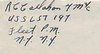 R E Callahan Y M 2/C
U S S L S T 197
Fleet P.M.
N.Y. N.Y.